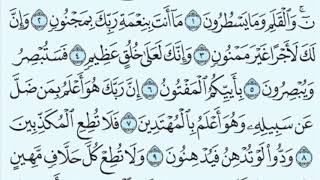 نٓ ۚ وَٱلْقَلَمِ وَمَا يَسْطُرُونَ ١ مَآ أَنتَ بِنِعْمَةِ رَبِّكَ بِمَجْنُونٍ ٢ وَإِنَّ
لَكَ لَأَجْرًا غَيْرَ مَمْنُونٍ ٣ وَإِنَّكَ لَعَلَىٰ خُلُقٍ عَظِيمٍ ٤ فَسَتُبْصِرُ
وَيُبْصِرُونَ ٥ بِأَييِّكُمُ ٱلْمَفْتُونُ ٦ إِنَّ رَبَّكَ هُوَ أَعْلَمُ بِمَن ضَلَّ
عَن سَبِيلِهِۦ وَهُوَ أَعْلَمُ بِٱلْمُهْتَدِينَ ٧ فَلَا تُطِعِ ٱلْمُكَذِّبِينَ
٨ وَدُّوا۟ لَوْ تُدْهِنُ فَيُدْهِنُونَ ٩ وَلَا تُطِعْ كُلَّ حَلَّافٍ مَّهِينٍ